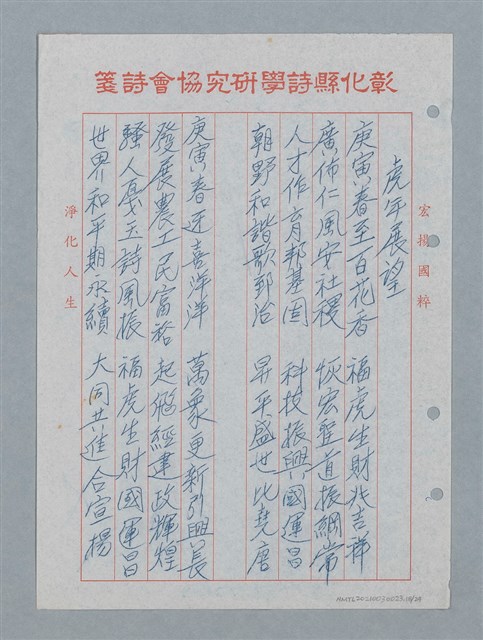 彰化縣詩學研究協會詩箋
宏揚國粹
虎年展望
庚寅春至百花香 福虎生財兆吉祥
廣佈仁風安社稷 恢宏聖道振綱常
人才作育邦基固 科技振興國運昌
朝野和諧歌郅治 昇平盛世比堯唐
庚寅春迓喜洋洋 萬象更新引興長
發展農工民富裕 起飛經建政輝煌
騷人戛玉詩風振 福虎生財國運昌
世界和平期永續 大同共進合宣揚
淨化人生